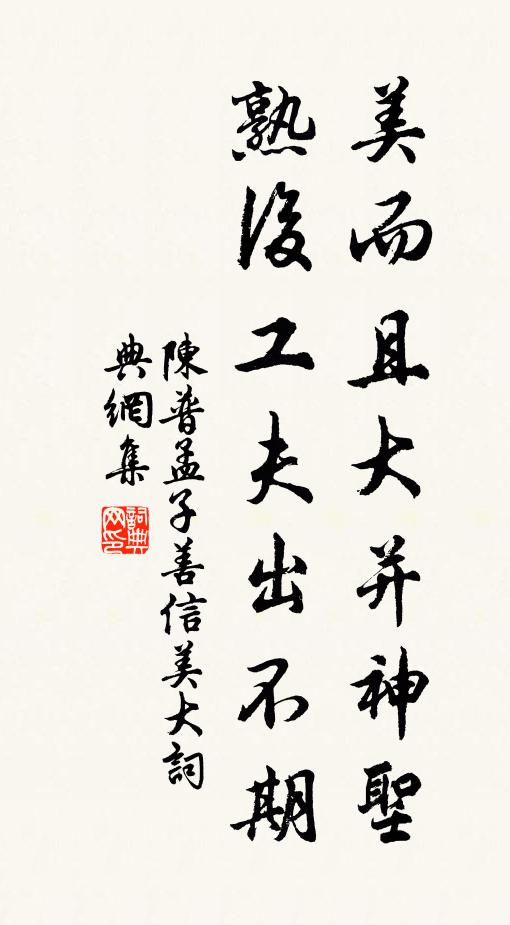 美而且大并神聖
熟後工夫出不期
陳普孟子善信美大詞
典網集
詞典
网印